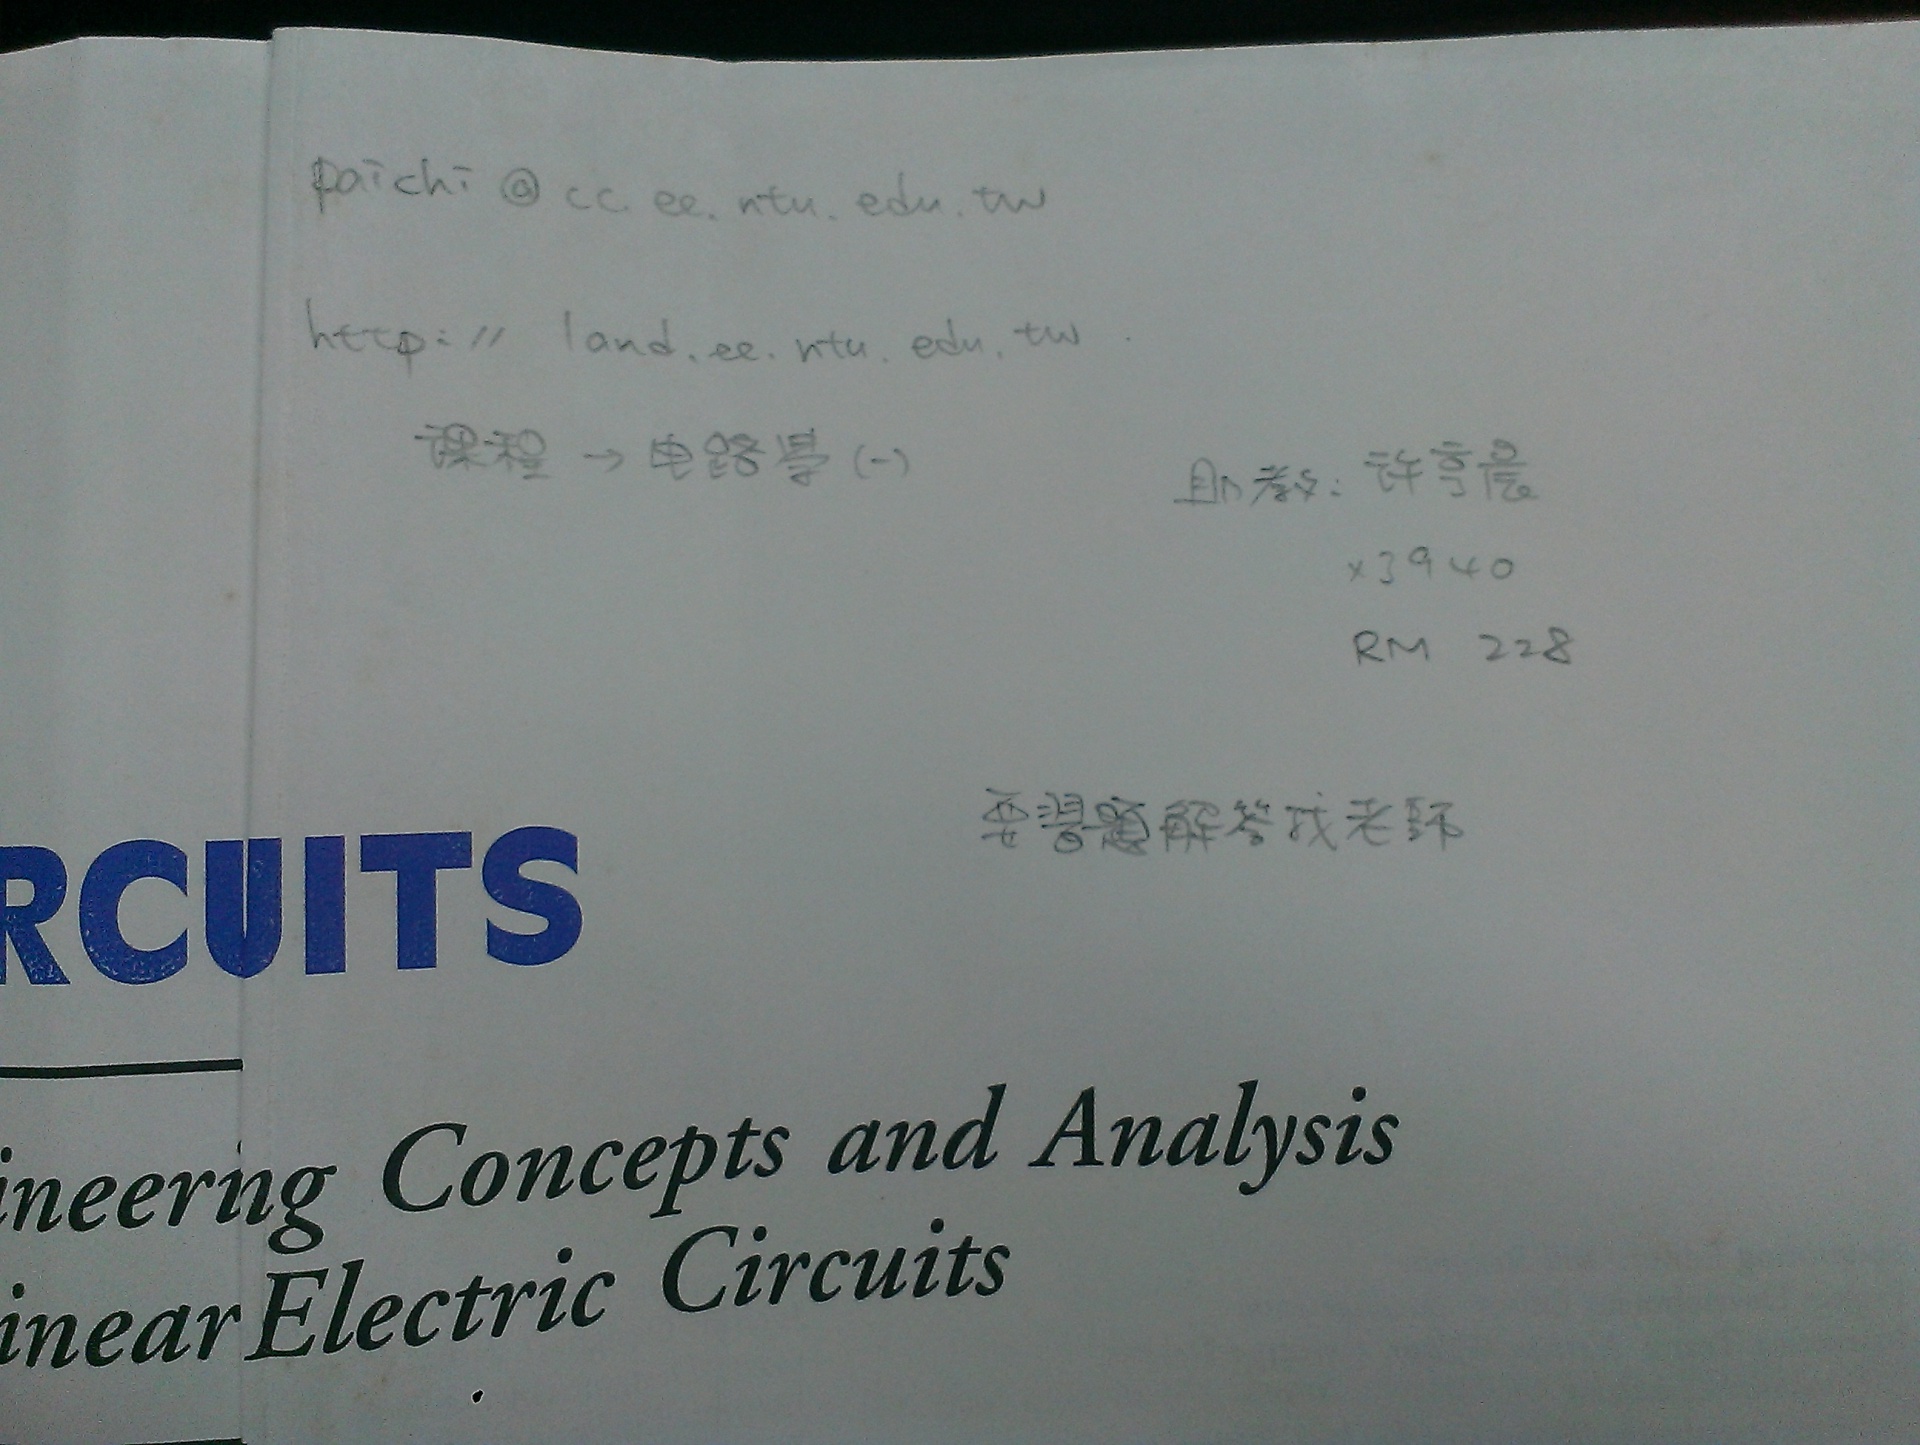 paichi @ cc. ee. ntu. edu. tw
http:// land. ee. ntu. edu. tw.
课程 → 电路學 (一)
助教: 许亨晨
x3940
RM 228
要習題解答找老師
RCUITS
ineering Concepts and Analysis
inear Electric Circuits